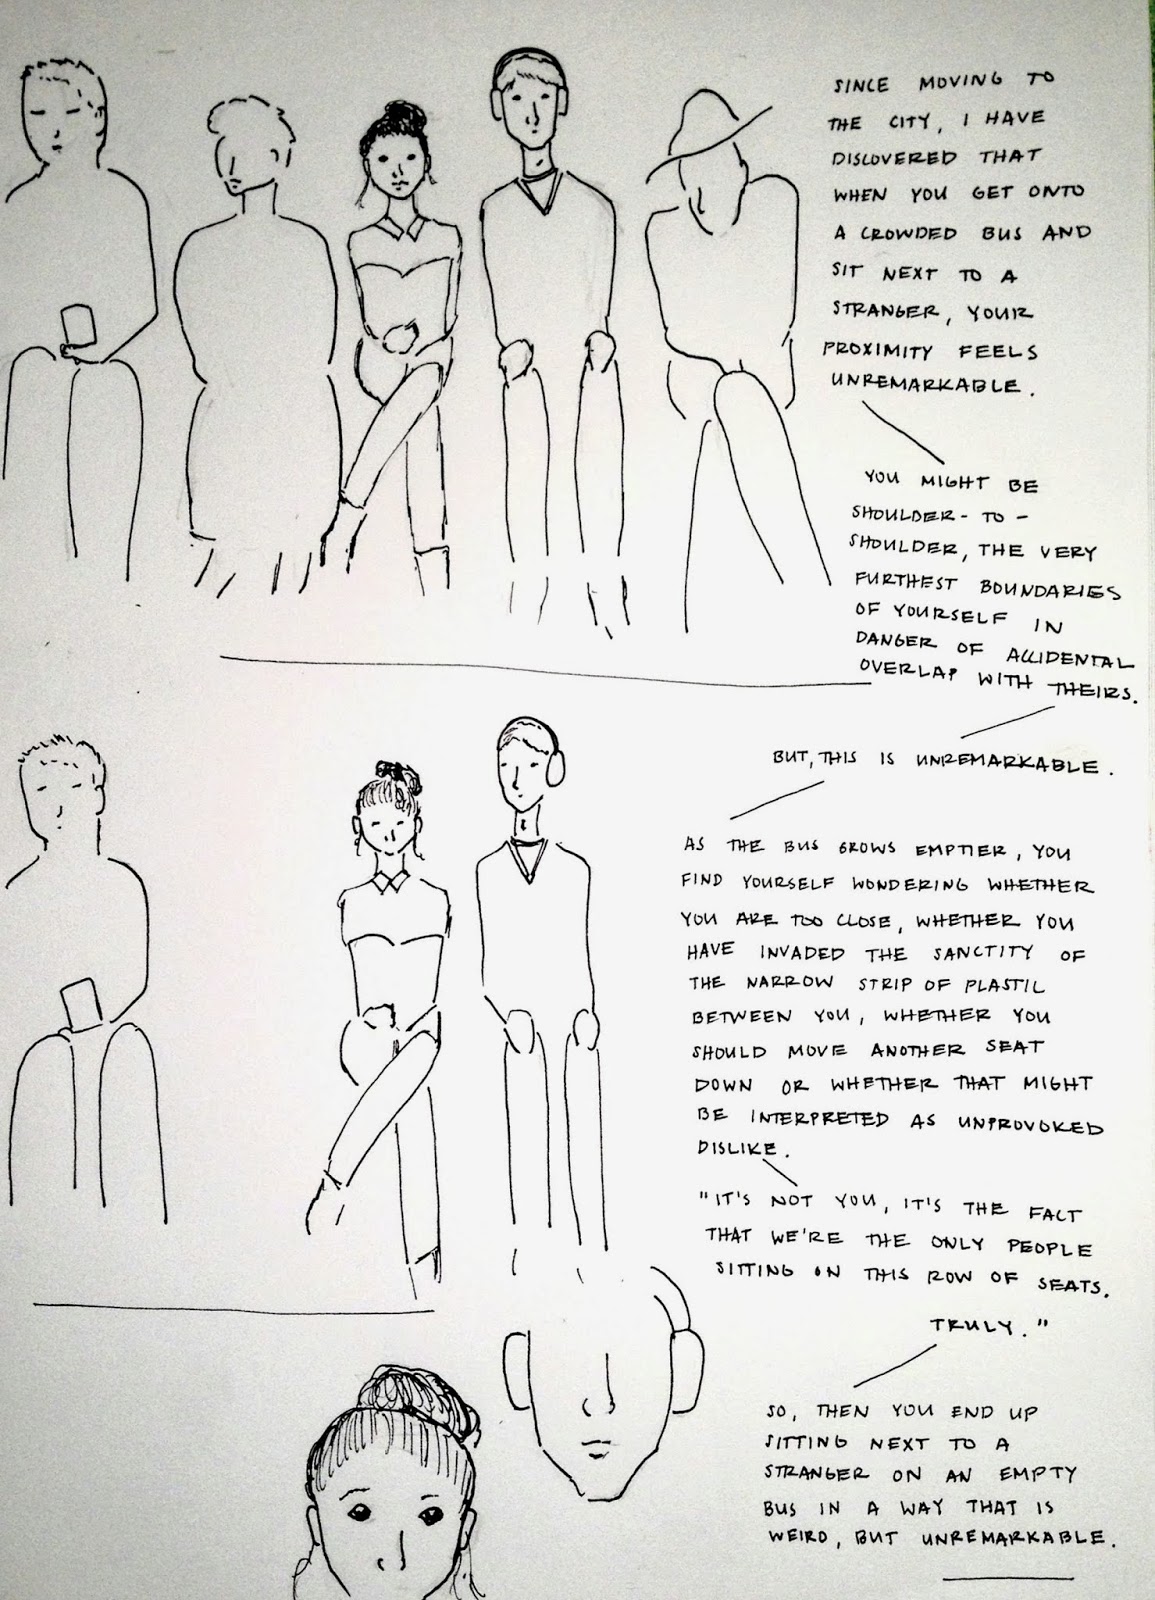 SINCE MOVING TO
THE CITY, I HAVE
DISCOVERED THAT
WHEN YOU GET ONTO
A CROWDED BUS AND
SIT NEXT TO A
STRANGER, YOUR
PROXIMITY FEELS
UNREMARKABLE.
YOU MIGHT BE
SHOULDER-TO-
SHOULDER, THE VERY
FURTHEST BOUNDARIES
OF YOURSELF IN
DANGER OF ACCIDENTAL
OVERLAP WITH THEIRS.
BUT, THIS IS UNREMARKABLE.
AS THE BUS GROWS EMPTIER, YOU
FIND YOURSELF WONDERING WHETHER
YOU ARE TOO CLOSE, WHETHER YOU
HAVE INVADED THE SANCTITY OF
THE NARROW STRIP OF PLASTIC
BETWEEN YOU, WHETHER YOU
SHOULD MOVE ANOTHER SEAT
DOWN OR WHETHER THAT MIGHT
BE INTERPRETED AS UNPROVOKED
DISLIKE.
"IT'S NOT YOU, IT'S THE FACT
THAT WE'RE THE ONLY PEOPLE
SITTING ON THIS ROW OF SEATS.
TRULY."
SO, THEN YOU END UP
SITTING NEXT TO A
STRANGER ON AN EMPTY
BUS IN A WAY THAT IS
WEIRD, BUT UNREMARKABLE.